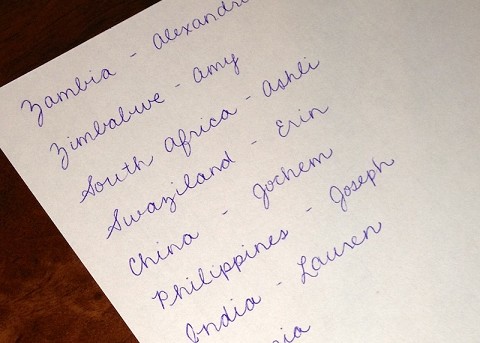 Zambia - Alexandr
Zimbabwe - Amy
South Africa - Ashli
Swaziland - Erin
China - Jochem
Philippines - Joseph
India - Lauren